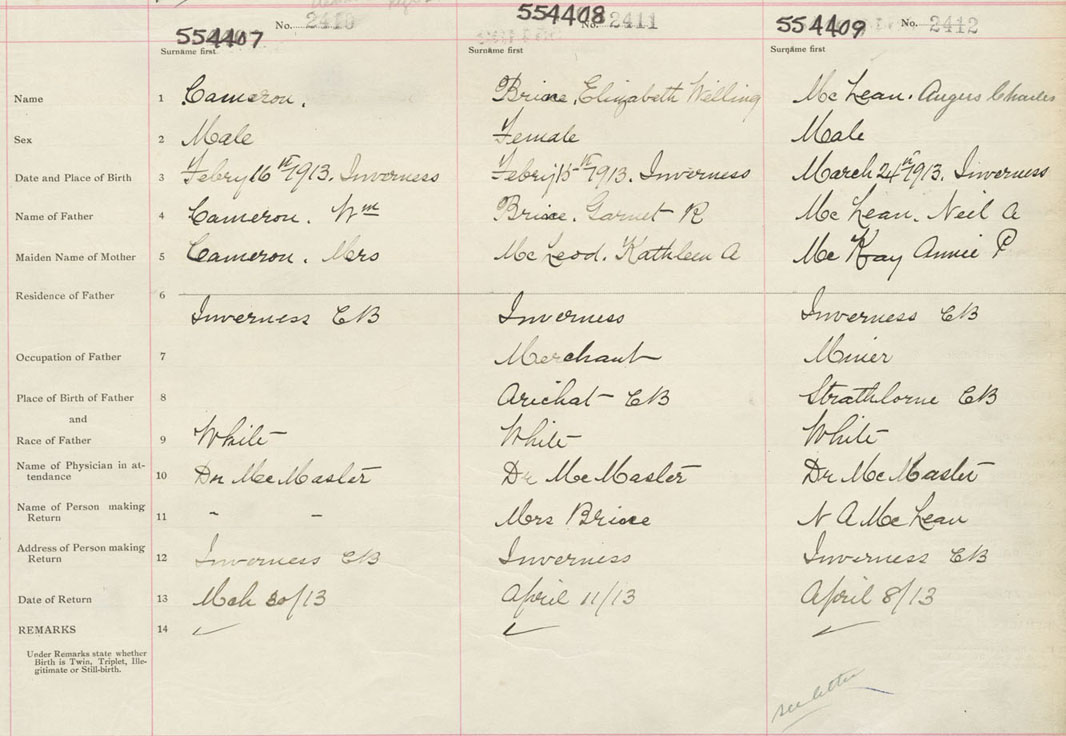 No. 2410 554408 No. 2411 554409 No. 2412
554407
Surname first Surname first Surname first
Name 1 Cameron. Brine, Elizabeth Welling Mc Lean. Angers Charles
Sex 2 Male Female Male
Date and Place of Birth 3 Febry 16th 1913. Inverness Febry 15th 1913. Inverness March 24th 1913. Inverness
Name of Father 4 Cameron. Wm Brine. Garnet R Mc Lean. Neil A
Maiden Name of Mother 5 Cameron. Mrs Mc Leod. Kathleen A Mc Kay Annie P
Residence of Father 6
Inverness CB Inverness Inverness CB
Occupation of Father 7 Merchant Miner
Place of Birth of Father 8 Arichat CB Strathlorne CB
and
Race of Father 9 White White White
Name of Physician in at-
tendance 10 Dr McMaster Dr McMaster Dr McMaster
Name of Person making
Return 11 " — Mrs Brine N A Mc Lean
Address of Person making
Return 12 Inverness CB Inverness Inverness CB
Date of Return 13 Mch 30/13 April 11/13 April 8/13
REMARKS 14
Under Remarks state whether
Birth is Twin, Triplet, Ille-
gitimate or Still-birth.
see letter